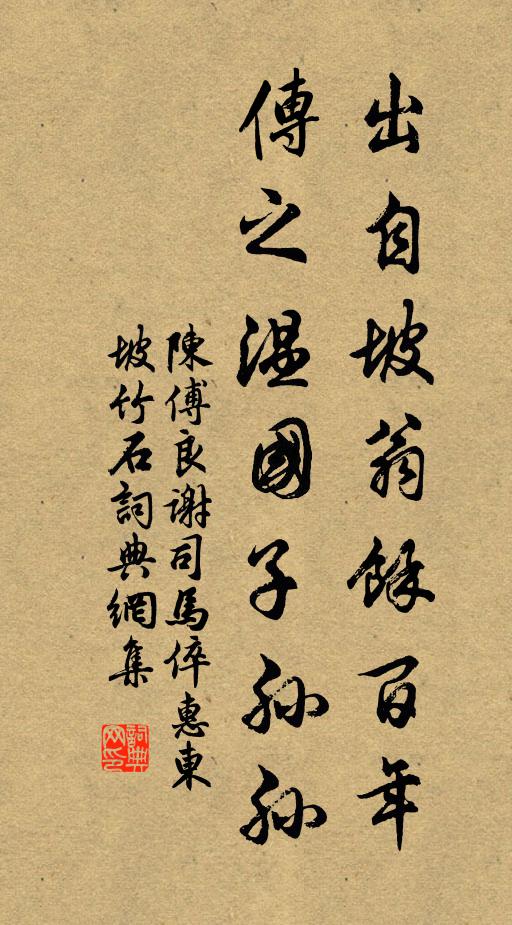 出自坡翁餘百年
傳之溫國子孫孫
陳傅良謝司馬倅惠東
坡竹石詞典網集
詞典
网印